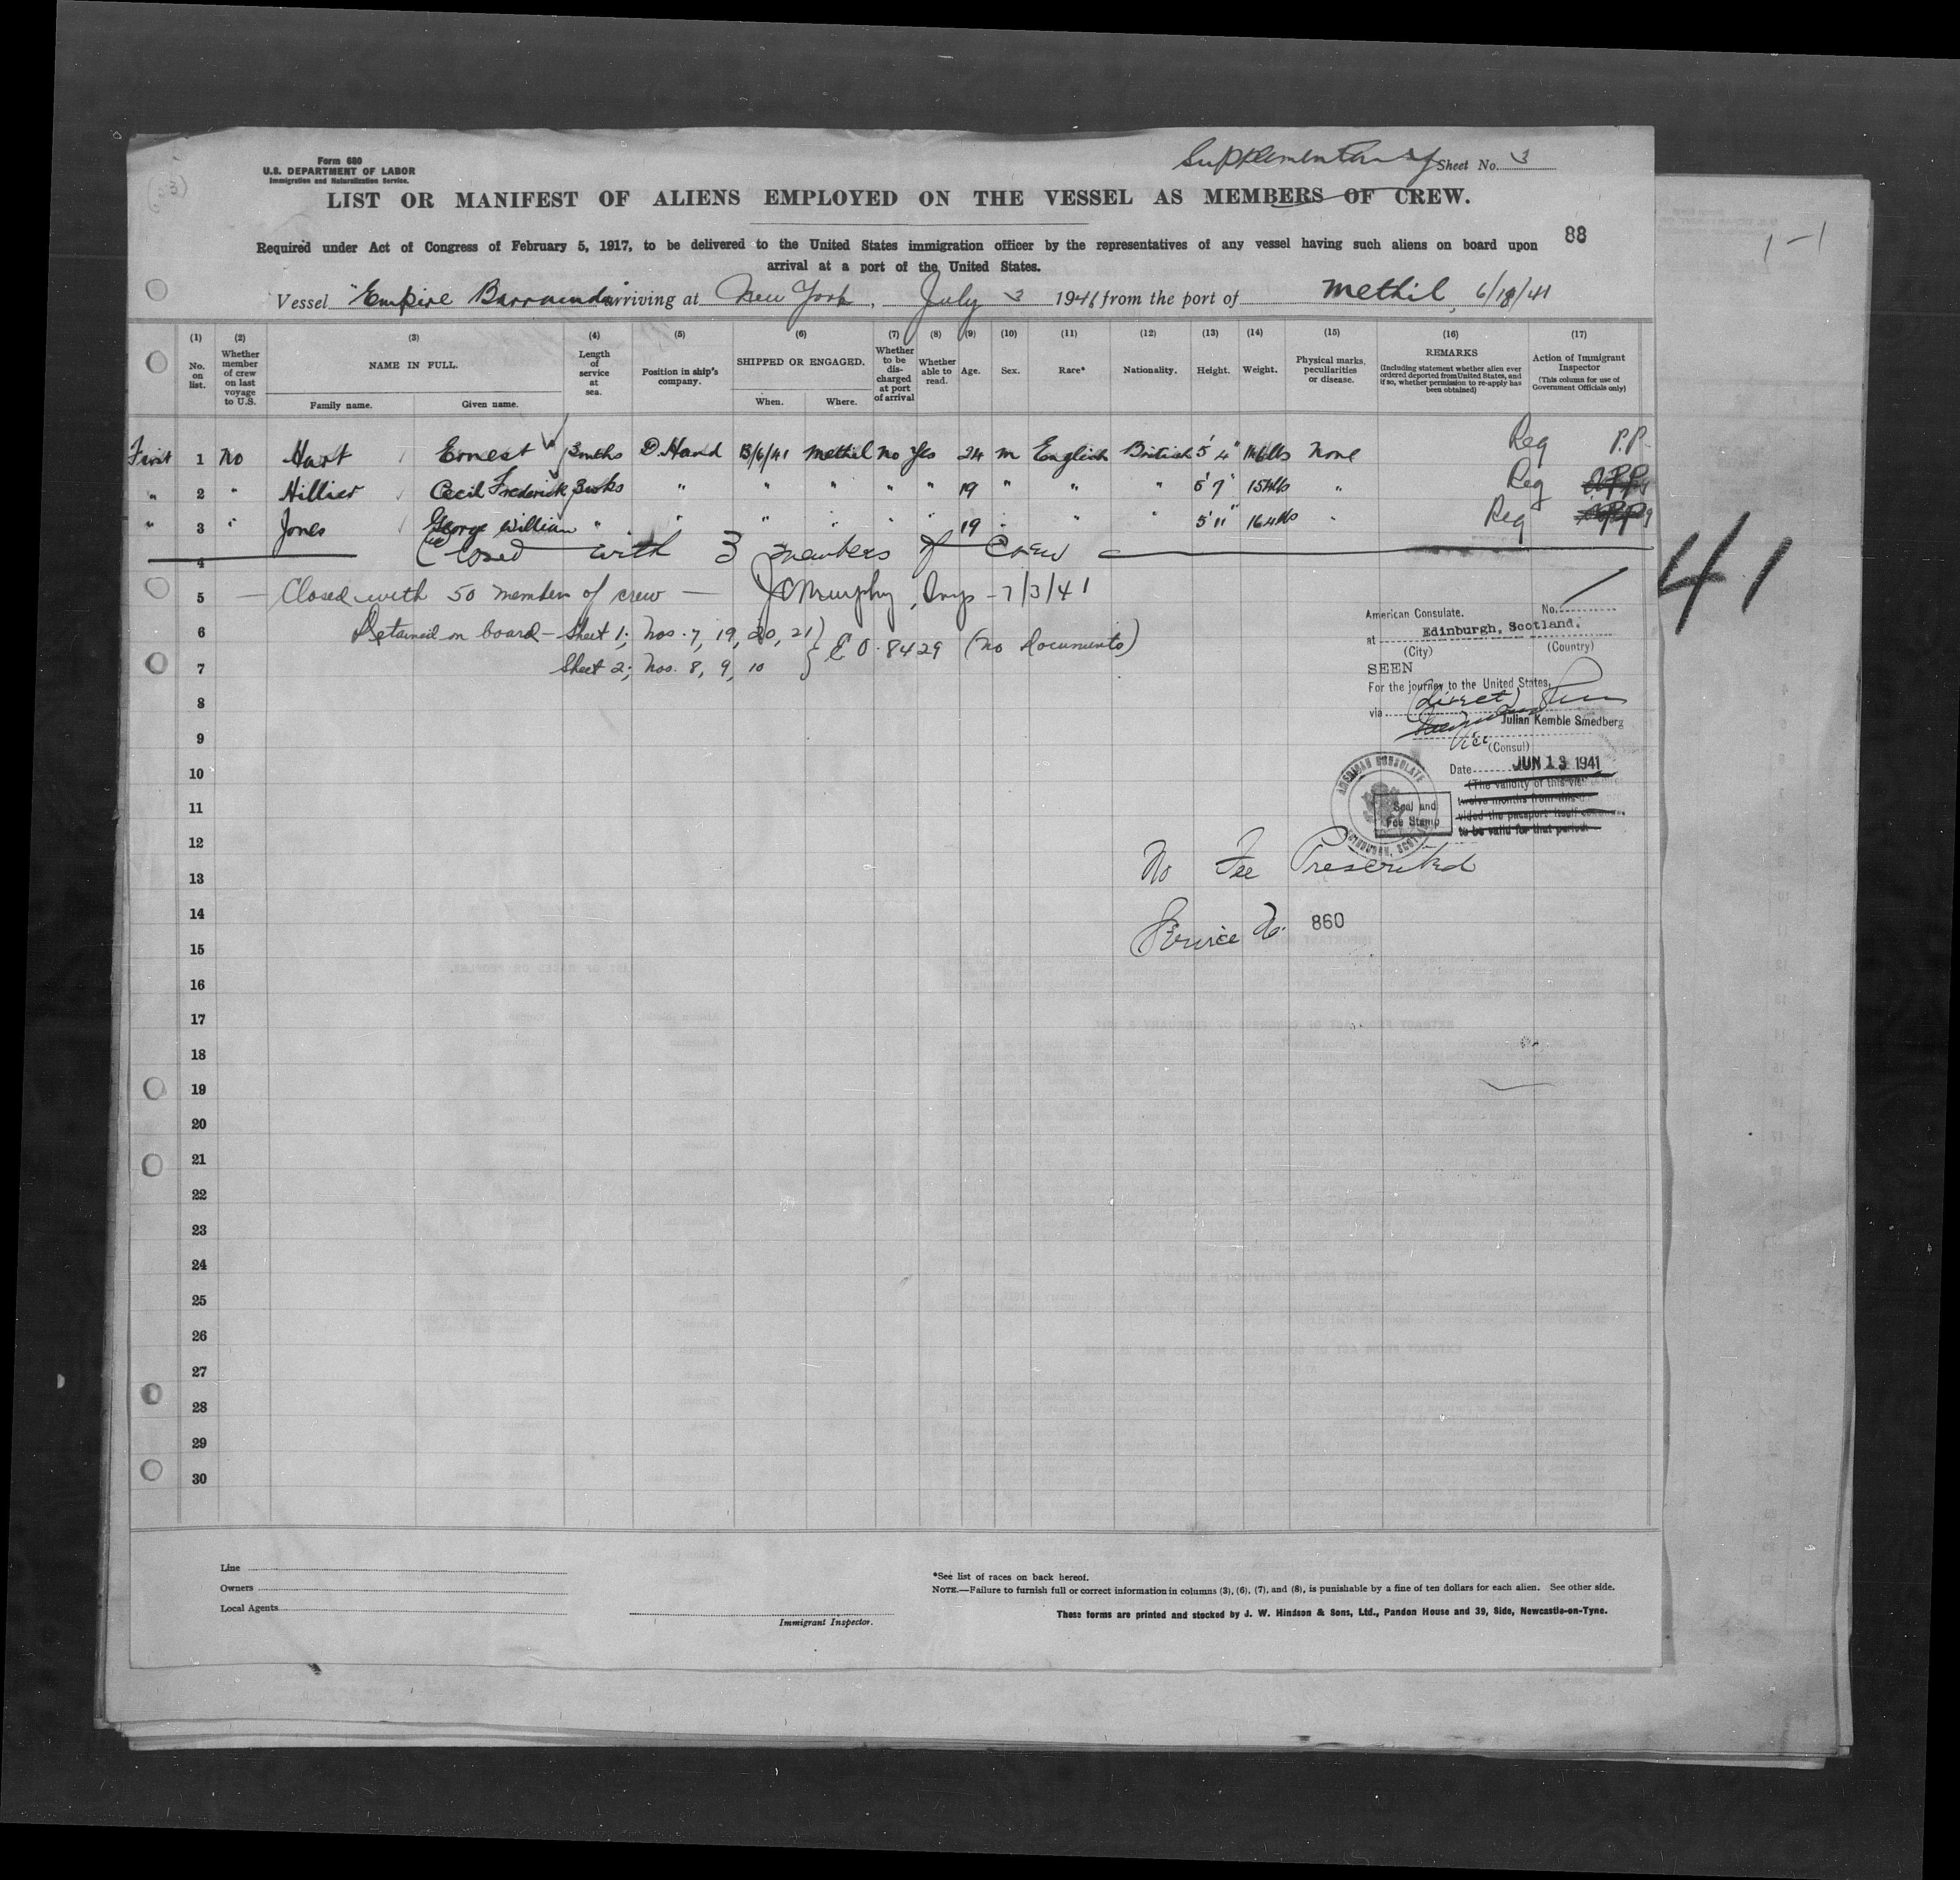 Form 680
U.S. DEPARTMENT OF LABOR
Immigration and Naturalization Service.
Supplementary Sheet No. 3
LIST OR MANIFEST OF ALIENS EMPLOYED ON THE VESSEL AS MEMBERS OF CREW.
88
Required under Act of Congress of February 5, 1917, to be delivered to the United States immigration officer by the representatives of any vessel having such aliens on board upon
arrival at a port of the United States.
Vessel "Empire Barrunda" arriving at New York, July 3 1941 from the port of Methil, 6/18/41
1-1
(1) No. on list.
(2) Whether member of crew on last voyage to U.S.
(3) NAME IN FULL. Family name. Given name.
(4) Length of service at sea.
(5) Position in ship's company.
(6) SHIPPED OR ENGAGED. When. Where.
(7) Whether to be discharged at port of arrival
(8) Whether able to read.
(9) Age.
(10) Sex.
(11) Race*
(12) Nationality.
(13) Height.
(14) Weight.
(15) Physical marks, peculiarities or disease.
(16) REMARKS (Including statement whether alien ever ordered deported from United States, and if so, whether permission to re-apply has been obtained)
(17) Action of Immigrant Inspector (This column for use of Government Officials only)
First 1 No Hart Ernest 3mths D. Hand 13/6/41 Methil No Yes 24 M English British 5' 4" lbs None Reg P.P.
" 2 " Hillier Cecil Frederick " " " " " 19 " " " 5' 7" 154lbs " Reg
" 3 " Jones George William " " " " " " 19 " " 5' 11" 164lbs " Reg
4 Closed with 3 members of Crew
5 Closed with 50 members of crew — J C Murphy, Insp - 7/3/41
6 Detained on board - Sheet 1; Nos. 7, 19, 20, 21 } E O. 8429 (No Documents)
7 Sheet 2; Nos. 8, 9, 10
41
American Consulate. No.
at Edinburgh, Scotland.
(City) (Country)
SEEN
For the journey to the United States,
via (direct)
Julian Kemble Smedberg
Vice (Consul)
Date JUN 13 1941
(The validity of this
twelve months from this
vided the passport itself
to be valid for that period.
AMERICAN CONSULATE
EDINBURGH, SCOTLAND
Seal and
Fee Stamp
No Fee Prescribed
Service No. 860
8
9
10
11
12
13
14
15
16
17
18
19
20
21
22
23
24
25
26
27
28
29
30
Line
Owners
Local Agents
Immigrant Inspector.
*See list of races on back hereof.
NOTE.—Failure to furnish full or correct information in columns (3), (6), (7), and (8), is punishable by a fine of ten dollars for each alien. See other side.
These forms are printed and stocked by J. W. Hindson & Sons, Ltd., Pandon House and 39, Side, Newcastle-on-Tyne.